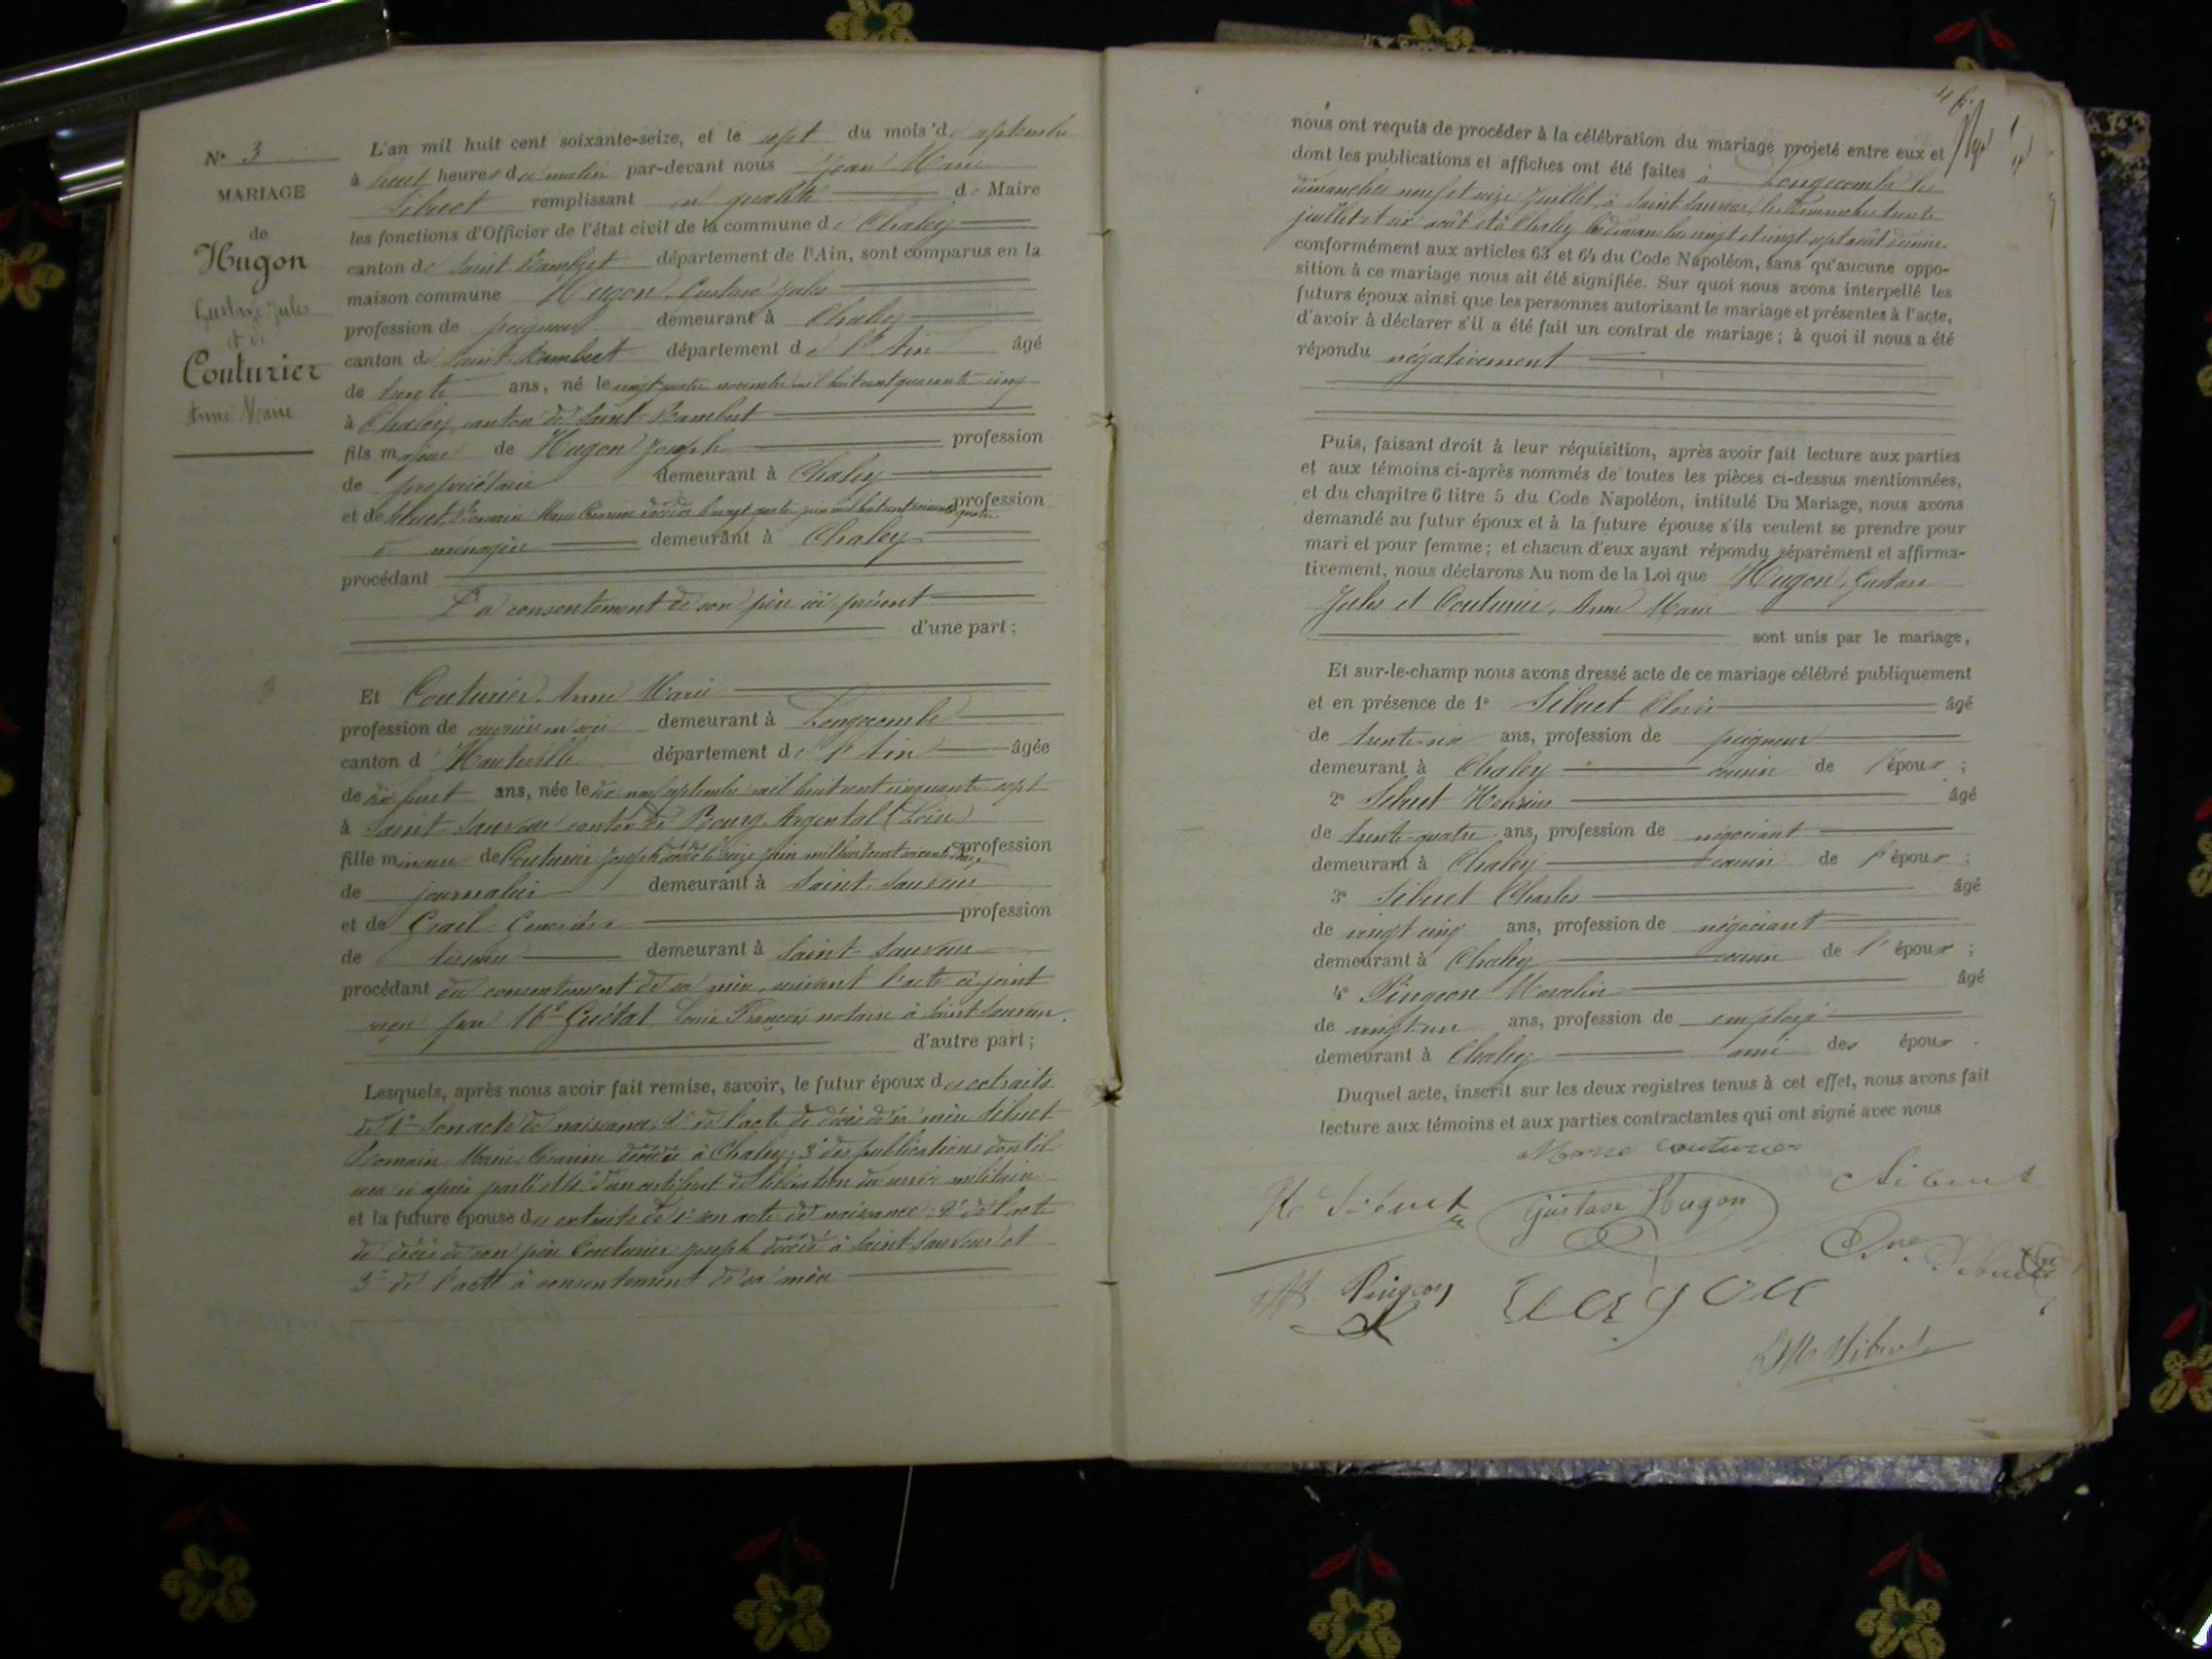 N° 3
MARIAGE
de
Hugon
Gustave Jules
et de
Couturier
Anne Marie
L'an mil huit cent soixante-seize, et le sept du mois de septembre
à huit heures du matin par-devant nous Jean Marie
Sibuet remplissant en qualité de Maire
les fonctions d'Officier de l'état civil de la commune de Chaley
canton de Saint-Rambert département de l'Ain, sont comparus en la
maison commune Hugon, Gustave Jules
profession de peigneur demeurant à Chaley
canton de Saint-Rambert département de l'Ain âgé
de trente ans, né le vingt quatre novembre mil huit cent quarante cinq
à Chaley, canton de Saint-Rambert
fils majeur de Hugon Joseph profession
de propriétaire demeurant à Chaley
et de Sibuet, Romain Marie décédée le vingt quatre juin mil huit cent soixante quatre profession
de ménagère demeurant à Chaley
procédant
Du consentement de son père ici présent
d'une part ;
Et Couturier, Anne Marie
profession de ouvrière en soie demeurant à Longecombe
canton d'Hauteville département de l'Ain âgée
de dix huit ans, née le dix neuf septembre mil huit cent cinquante sept
à Saint-Sauveur canton de Bourg-Argental (Loire)
fille mineure de Couturier Joseph décédé le seize juin mil huit cent soixante profession
de journalier demeurant à Saint-Sauveur
et de Grail Geneviève profession
de demeurant à Saint-Sauveur
procédant du consentement de sa mère, suivant l'acte ci-joint
reçu par Me Guétat Louis François notaire à Saint-Sauveur.
d'autre part ;
Lesquels, après nous avoir fait remise, savoir, le futur époux des extraits
de 1° son acte de naissance, 2° de l'acte de décès de sa mère Sibuet
Romain Marie décédée à Chaley ; 3° des publications dont il
sera ci après parlé et 4° d'un certificat de libération du service militaire
et la future épouse des extraits de 1° son acte de naissance ; 2° de l'acte
de décès de son père Couturier Joseph décédé à Saint-Sauveur et
3° de l'acte à consentement de sa mère
46
nous ont requis de procéder à la célébration du mariage projeté entre eux et
dont les publications et affiches ont été faites à Longecombe les
dimanches neuf et seize juillet, à Saint Sauveur, les dimanches trente
juillet et six août et à Chaley les dimanches vingt et vingt sept août dernier
conformément aux articles 63 et 64 du Code Napoléon, sans qu'aucune oppo-
sition à ce mariage nous ait été signifiée. Sur quoi nous avons interpellé les
futurs époux ainsi que les personnes autorisant le mariage et présentes à l'acte,
d'avoir à déclarer s'il a été fait un contrat de mariage ; à quoi il nous a été
répondu négativement
Puis, faisant droit à leur réquisition, après avoir fait lecture aux parties
et aux témoins ci-après nommés de toutes les pièces ci-dessus mentionnées,
et du chapitre 6 titre 5 du Code Napoléon, intitulé Du Mariage, nous avons
demandé au futur époux et à la future épouse s'ils veulent se prendre pour
mari et pour femme ; et chacun d'eux ayant répondu séparément et affirma-
tivement, nous déclarons Au nom de la Loi que Hugon, Gustave
Jules et Couturier, Anne Marie
sont unis par le mariage,
Et sur-le-champ nous avons dressé acte de ce mariage célébré publiquement
et en présence de 1° Sibuet Clovis âgé
de trente-six ans, profession de peigneur
demeurant à Chaley cousin de l'époux ;
2° Sibuet Honorius âgé
de trente-quatre ans, profession de négociant
demeurant à Chaley cousin de l'époux ;
3° Sibuet Charles âgé
de vingt cinq ans, profession de négociant
demeurant à Chaley cousin de l'époux ;
4° Pingeon Maralin âgé
de vingt un ans, profession de employé
demeurant à Chaley ami des époux.
Duquel acte, inscrit sur les deux registres tenus à cet effet, nous avons fait
lecture aux témoins et aux parties contractantes qui ont signé avec nous
Marie Couturier
H Sibuet Gustave Hugon Sibuet
Pingeon ugon Sibuet
JM Sibuet